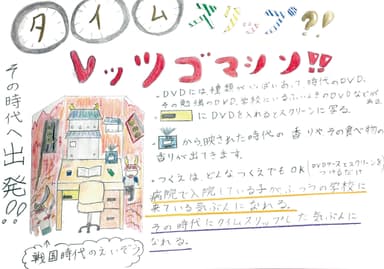 タイムマシン?!
レッツゴマシン!!
その時代へ出発!!
・DVDには種類がいっぱいあって、時代のDVD、
その勉強のDVD、学校というふいんきのDVDなどがある。
にDVDを入れるとスクリーンに写る。
・から映された時代の香りやその食べ物の
香りが出てきます。
・つくえは、どんなつくえでもOK(DVDケースとスクリーンをつけるだけ)
病院で入院している子が、ふつうの学校に
来ている気ぶんになれる。
その時代にタイムスリップした気ぶんに
なれる。
戦国時代のえいぞう